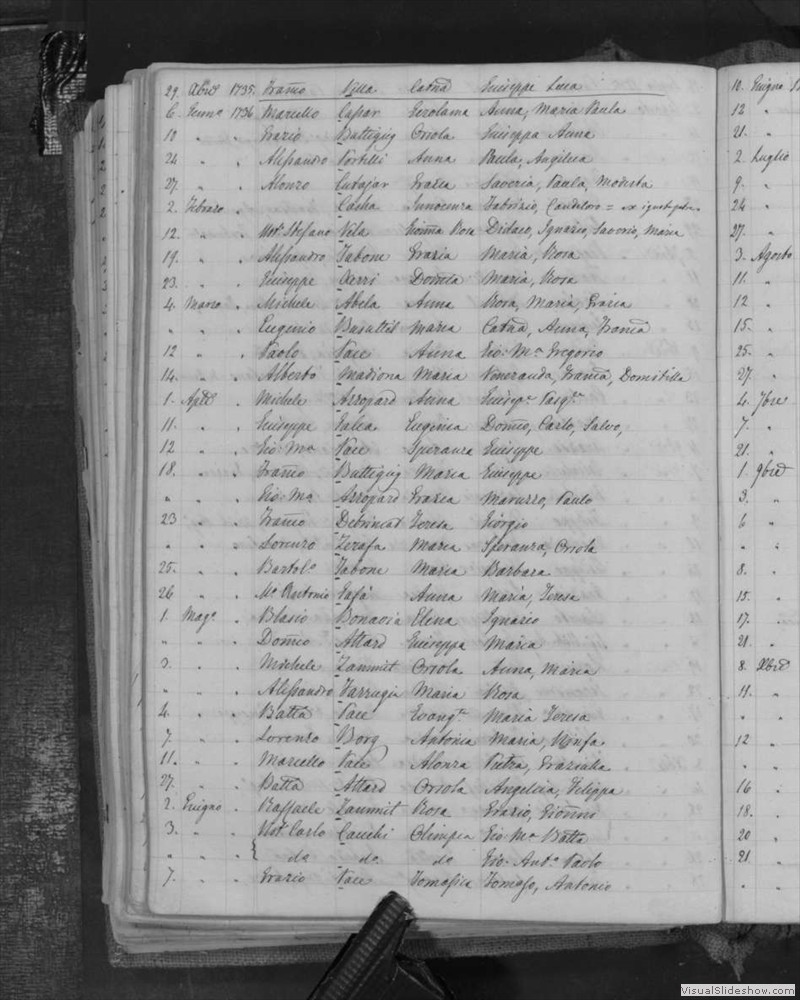 29. Xbre 1735. Franco Villa Catna Giuseppe Luca
6. Genno 1736 Marcello Caspar Gerolama Anna, Maria Paula
10 " " Grazio Buttigieg Orsola Giuseppa Anna
24 " " Alessandro Portelli Anna Paula, Angelica
27. " " Alonzo Cutajar Grazia Saveria, Paula, Modesta
2. Febraro " Casha Innocenza Fabrizio, Candeloro =
12. " " Not. Stefano Vela Gioanna Rosa Didaco, Ignazio, Saverio, Maria
19. " " Alessandro Tabone Grazia Maria, Rosa
23. " " Giuseppe Xerri Domca Maria, Rosa
4. Marzo " Michele Abela Anna Rosa, Maria, Grazia
" " " Eugenio Busuttil Maria Catna, Anna, Franca
12 " " Paolo Pace Anna Gio: Ma Gregorio
14. " " Alberto Madiona Maria Veneranda, Franca, Domitilla
1. Aple " Michele Azzopard Anna Giuspe Pasqe
11. " " Giuseppe Galea Eugenia Domco, Carlo, Salvo,
12 " " Gio: Ma Pace Speranza Giuseppe
18. " " Franco Buttigieg Maria Giuseppe
" " " Gio: Ma Azzopard Grazia Maruzzo, Paulo
23 " " Franco Debrincat Teresa Giorgio
" " " Lorenzo Zerafa Maria Speranza, Orsola
25. " " Bartolo Tabone Maria Barbara
26 " " Mc Antonio Safá Anna Maria, Teresa
1. Mago " Blasio Bonavia Elena Ignazio
" " " Domco Attard Giuseppa Maria
3. " " Michele Zammit Orsola Anna, Maria
" " " Alessandro Farrugia Maria Rosa
4. " " Batta Pace Evangta Maria Teresa
7 " " Lorenzo Borg Antonia Maria, Ninfa
11. " " Marcello Pace Alonza Pietra, Graziulla
27. " " Batta Attard Orsola Angelica, Filippa
2. Giugno " Raffaele Zammit Rosa Grazio, Gionni
3. " " Not. Carlo Cauchi Olimpia Gio: Ma Batta
" " { do do do Gio: Anto Paolo
7. " " Grazio Pace Tomasica Tomaso, Antonio
10. Giugno 1
12 "
21. "
2. Luglio
9. "
24 "
27. "
3. Agosto
11. "
12 "
15. "
25. "
27. "
4. 7bre
7. "
21. "
1. 9bre
3. "
6 "
" "
8. "
15. "
17. "
21. "
8. Xbre
11. "
" "
12 "
16 "
18. "
20 "
21. "
" "
VisualSlideshow.com